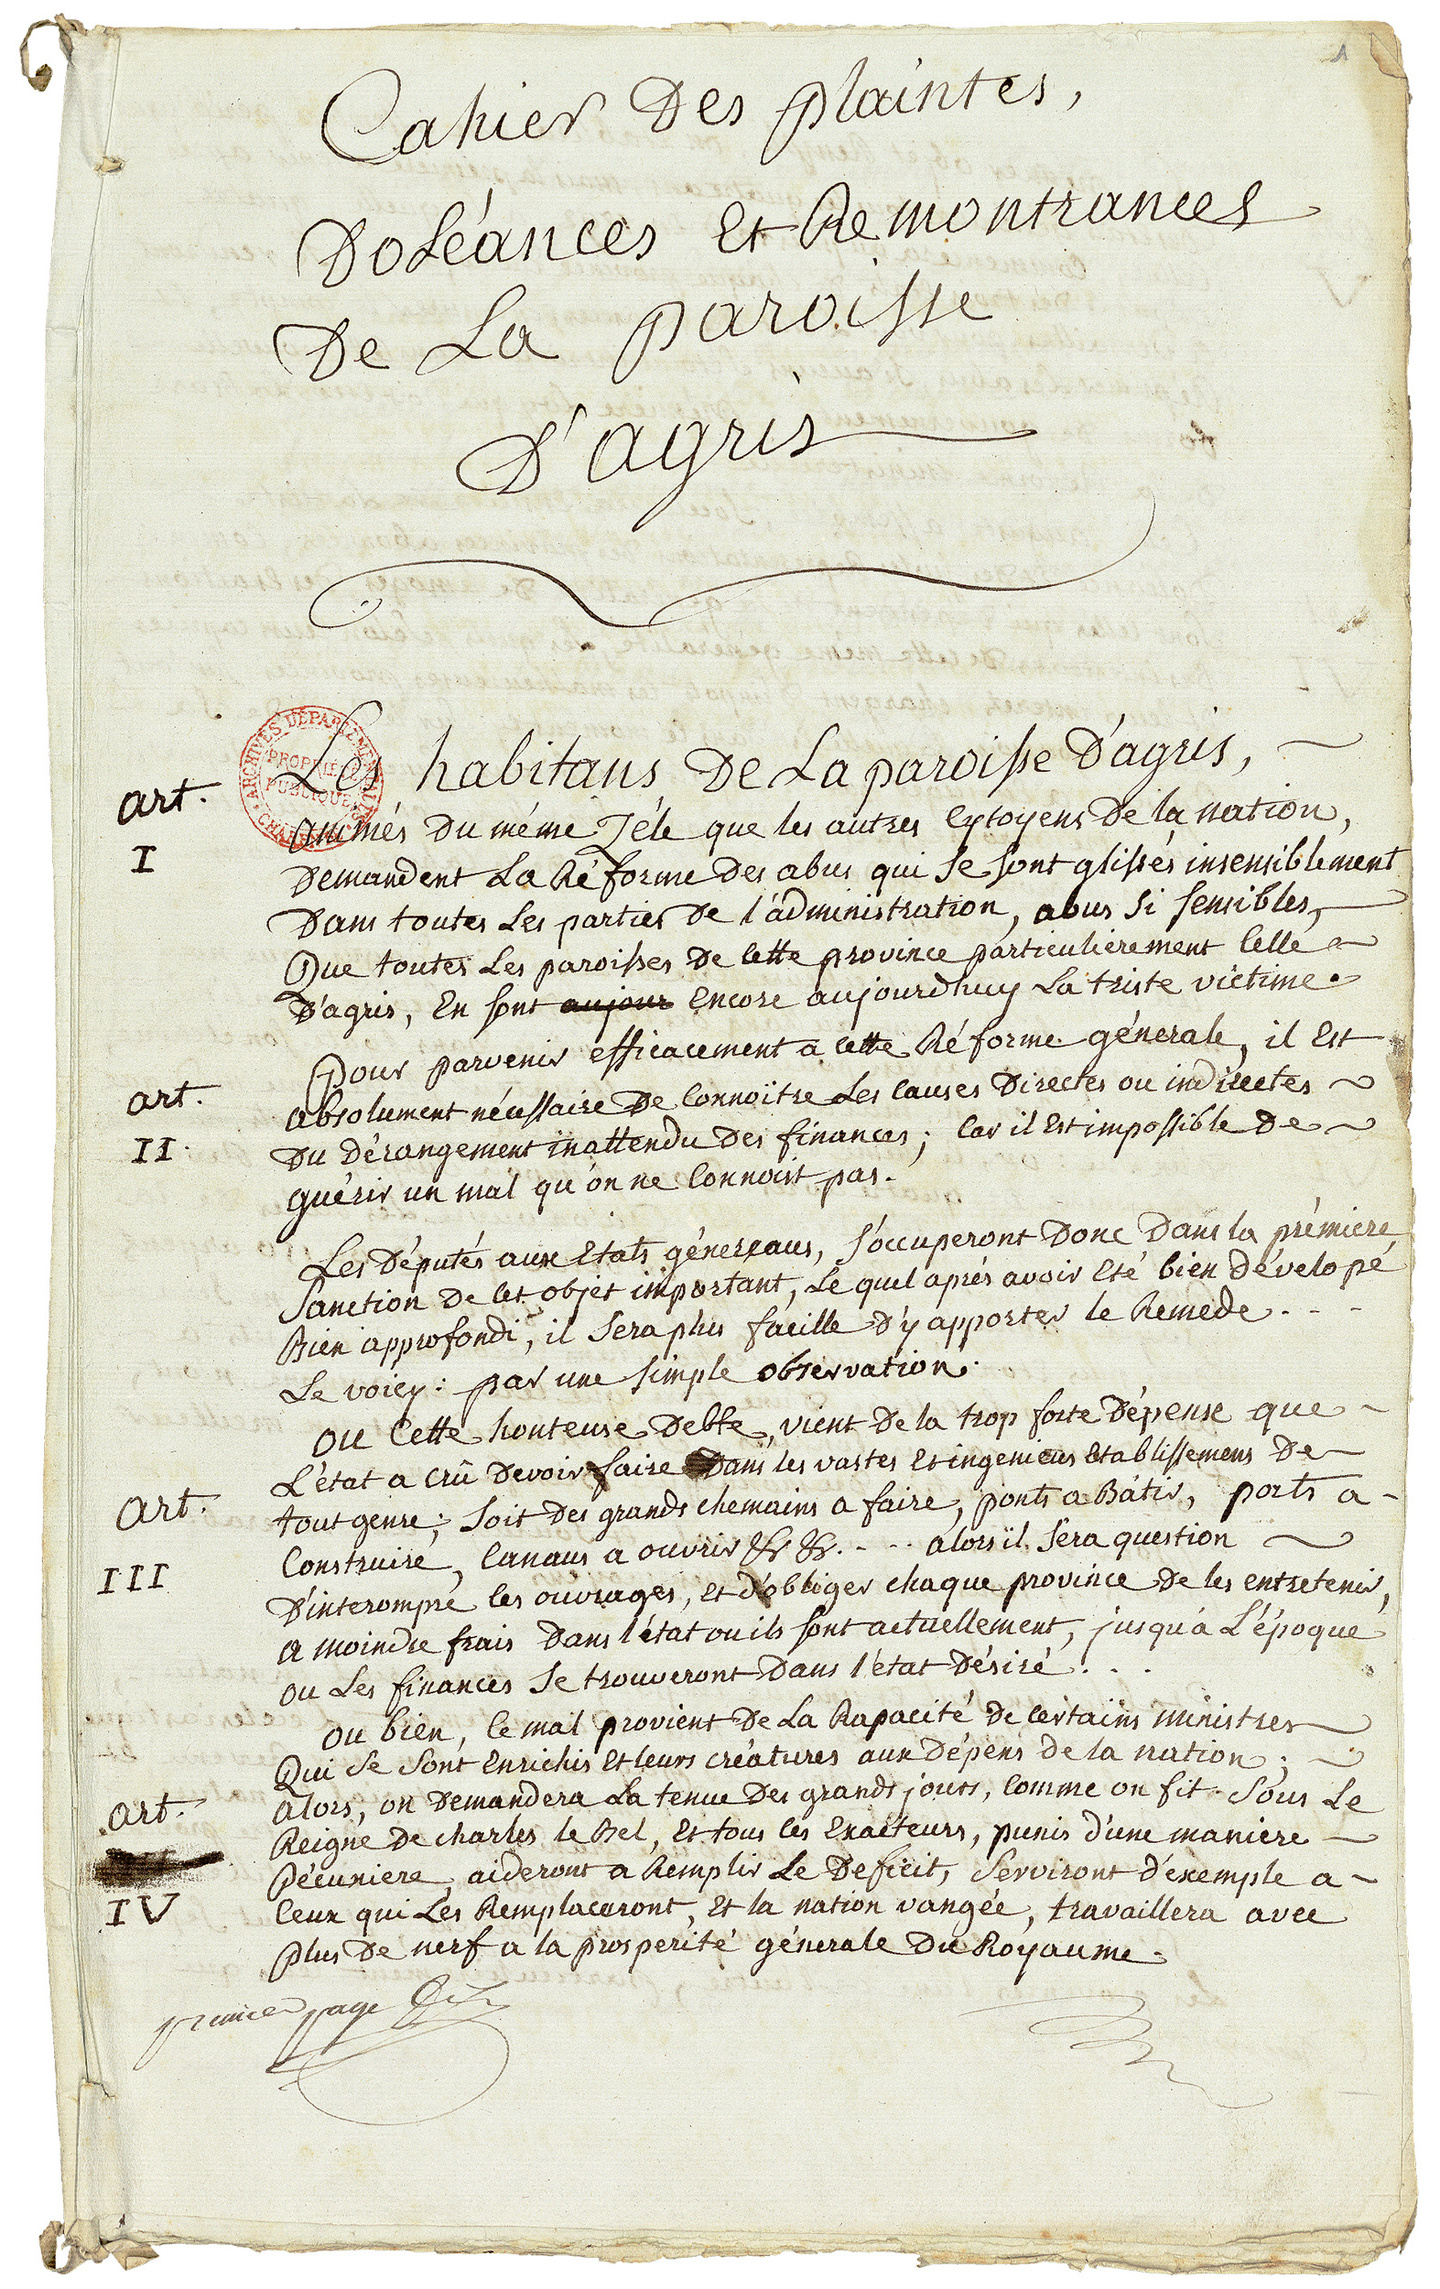 1
Cahier Des plaintes,
Doléances Et Remontrances
De La paroisse
D'agris
ARCHIVES DÉPARTEMENTALES
PROPRIÉTÉ
PUBLIQUE
Les habitans De La paroisse D'agris,
art.
I
animés Du même Zéle que les autres Cytoyens De la nation,
Demandent La Réforme Des abus qui se sont glissés insensiblement
Dans toutes Les parties De l'administration, abus si sensibles,
Que toutes Les paroisses De Cette province particulièrement Celle
D'agris, En sont aujour Encore aujourdhuy La triste victime.
Pour parvenir efficacement a Cette Réforme génerale, il Est
art.
II.
absolument nécessaire De Connoître Les Causes Directes ou indirectes
Du Dérangement inattendu Des finances; Car il Est impossible De
guérir un mal qu'on ne Connoist pas.
Les Députés aux Etats géneraux, s'occuperont Donc Dans la prémiere
Sanction De Cet objet important, Le quel aprés avoir Eté bien dévelopé
Bien approfondi, il Sera plus facille D'y apporter le Remede. - -
Le voicy: par une simple observation.
ou Cette honteuse Debte, vient De la trop forte Dépense que
L'état a crû Devoir faire Dans les vastes Et ingenieux Etablissemens De
art.
III
tout genre; Soit Des grands chemains a faire, ponts a Bâtir, ports a
Construire, Canaux a ouvrir &c &c. - - - alors il Sera question
D'interompre les ouvrages, et d'obliger chaque province De les entretenir,
a moindre frais Dans l'état ou ils sont actuellement, jusqu'à L'époque
ou Les finances Se trouveront Dans l'état Désiré. . .
ou bien, le mal provient De La Rapacité De certains ministres
Qui Se Sont Enrichis Et leurs créatures aux Dépens de la nation;
art.
IV
alors, on Demandera La tenue Des grands jours, Comme on fit Sous Le
Reigne De charles le Bel, Et tous les Exacteurs, punis d'une maniere
Pécuniere, aideront a Remplir Le Deficit, Serviront d'éxemple a
Ceux qui Les Remplaceront, Et la nation vangée, travaillera avec
plus De nerf a la prosperité génerale Du Royaume.
premier page